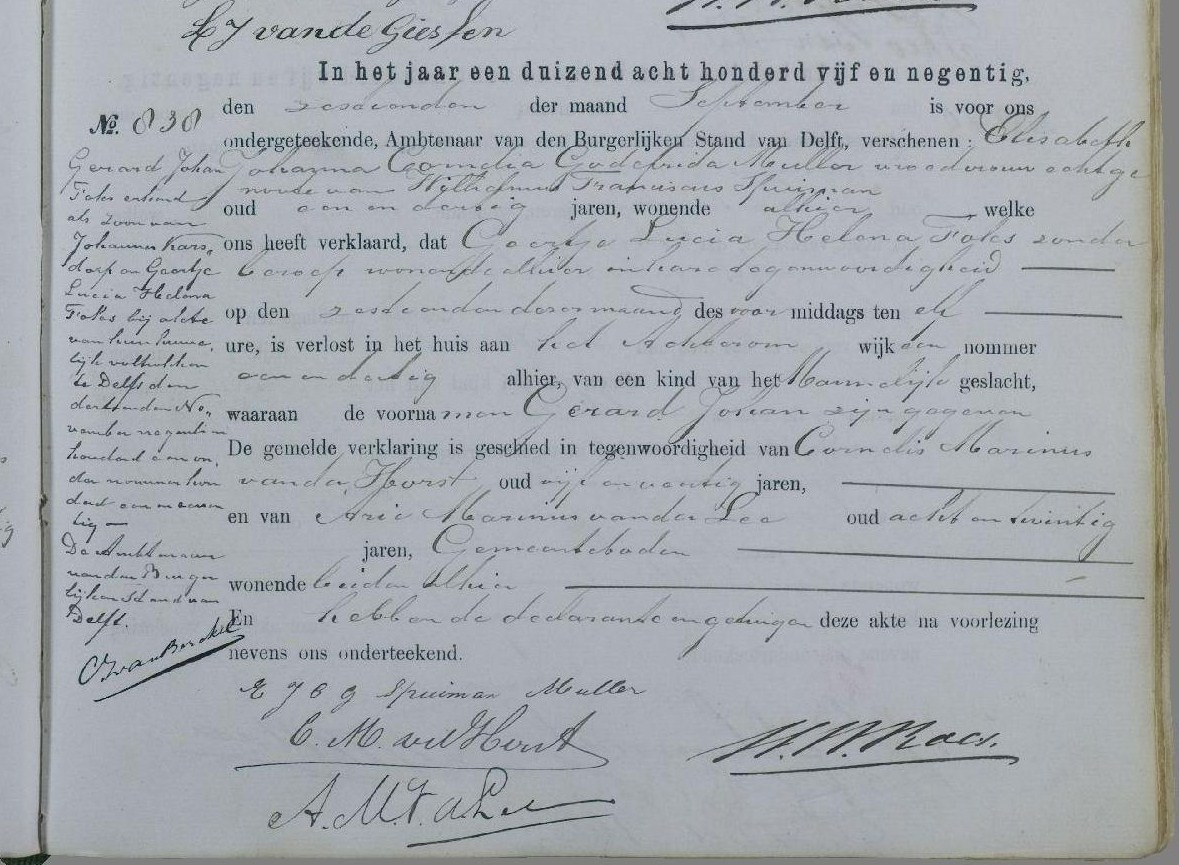 LJ vande Giessen
In het jaar een duizend acht honderd vijf en negentig,
den zestienden der maand September is voor ons
No. 838
ondergeteekende, Ambtenaar van den Burgerlijken Stand van Delft, verschenen: Elisabeth
Johanna Cornelia Godefrida Muller vroedvrouw echtge
noote van Wilhelmus Franciscus Spuisman
oud een en dertig jaren, wonende alhier welke
ons heeft verklaard, dat Geertje Lucia Helena Fokes zonder
beroep wonende alhier in hare tegenwoordigheid
op den zestienden dezer maand des voor middags ten elf
ure, is verlost in het huis aan het Achterom wijk den nommer
een en dertig alhier, van een kind van het Mannelijk geslacht,
waaraan de voorna men Gerard Johan zijn gegeven
De gemelde verklaring is geschied in tegenwoordigheid van Cornelis Marinus
van der Horst oud vijf en veertig jaren,
en van Arie Marinus van der Lee oud acht en twintig
jaren, Gemeenteboden
wonende beiden alhier
En hebben de declarante en getuigen deze akte na voorlezing
nevens ons onderteekend.
E J C G Spuiman Muller
C. M. vd Horst
A. M. v. d. Lee
Gerard Johan
Fokes erkend
als zoon van
Johannes Kars„
dorp en Geertje
Lucia Helena
Fokes bij akte
van hun huwe„
lijk voltrokken
te Delft den
derden No„
vember negentien
honderd een on„
der nommer hon
derd een en
tig —
De Ambtenaar
van den Burger
lijken Stand van
Delft.